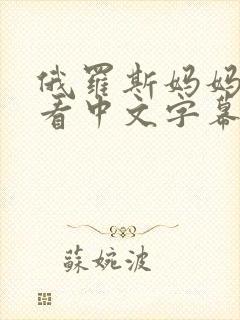 俄罗斯妈妈
看中文字幕
蘇婉波